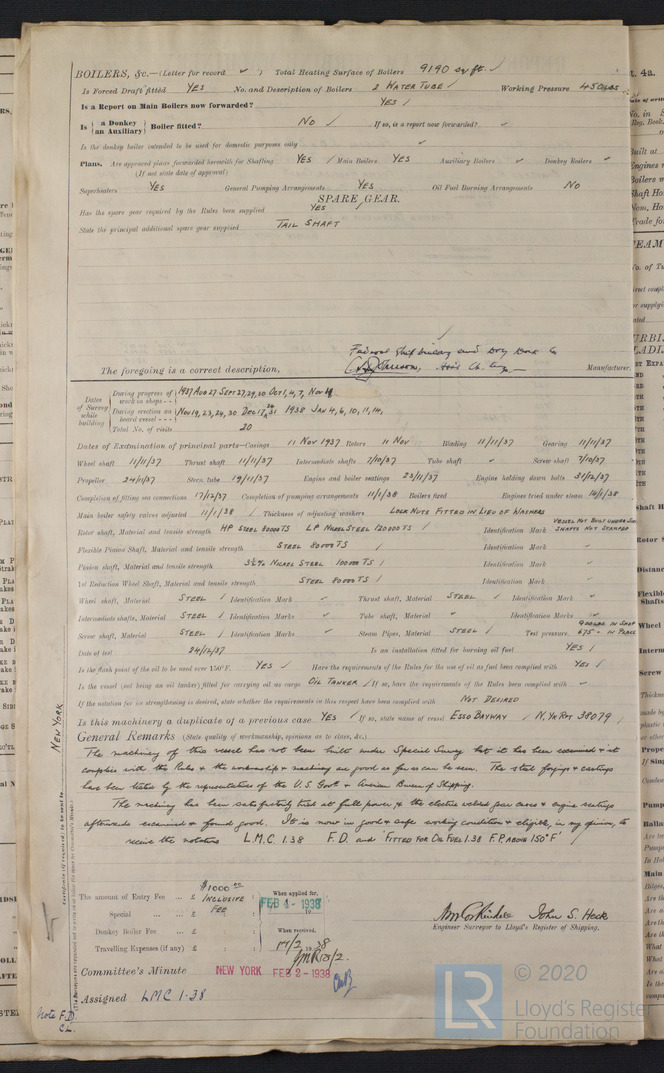 BOILERS, &c.—(Letter for record ✓ ) Total Heating Surface of Boilers 9190 sq ft. /
Is Forced Draft fitted YES No. and Description of Boilers 2 WATER TUBE / Working Pressure 450 LBS
Is a Report on Main Boilers now forwarded? YES /
Is { a Donkey / an Auxiliary } Boiler fitted? NO / If so, is a report now forwarded? ✓
Is the donkey boiler intended to be used for domestic purposes only ✓
Plans. Are approved plans forwarded herewith for Shafting YES / Main Boilers YES Auxiliary Boilers ✓ Donkey Boilers ✓
(If not state date of approval)
Superheaters YES General Pumping Arrangements YES Oil Fuel Burning Arrangements NO
SPARE GEAR.
Has the spare gear required by the Rules been supplied YES /
State the principal additional spare gear supplied TAIL SHAFT
Federal Shipbuilding and Dry Dock Co
The foregoing is a correct description, Manufacturer.
Dates of Survey while building
During progress of work in shops - - 1937 AUG 27 SEPT 27, 29, 30 OCT 1, 4, 7, NOV 11
During erection on board vessel - - - NOV 19, 23, 24, 30 DEC 17, 24, 31 1938 JAN 4, 6, 10, 11, 14,
Total No. of visits 20
Dates of Examination of principal parts—Casings 11 NOV 1937 Rotors 11 NOV Blading 11/11/37 Gearing 11/11/37
Wheel shaft 11/11/37 Thrust shaft 11/11/37 Intermediate shafts 7/10/37 Tube shaft ✓ Screw shaft 7/10/37
Propeller 24/11/37 Stern tube 19/11/37 Engine and boiler seatings 23/11/37 Engine holding down bolts 31/12/37
Completion of fitting sea connections 17/12/37 Completion of pumping arrangements 11/1/38 Boilers fixed Engines tried under steam 14/1/38
Main boiler safety valves adjusted 11/1/38 / Thickness of adjusting washers LOCK NUTS FITTED IN LIEU OF WASHERS
Rotor shaft, Material and tensile strength HP STEEL 80000 TS LP NICKEL STEEL 120000 TS / Identification Mark VESSEL NOT BUILT UNDER SHAFTS NOT STAMPED
Flexible Pinion Shaft, Material and tensile strength STEEL 80000 TS Identification Mark ✓
Pinion shaft, Material and tensile strength 3½% NICKEL STEEL 100000 TS / Identification Mark ✓
1st Reduction Wheel Shaft, Material and tensile strength STEEL 80000 TS / Identification Mark ✓
Wheel shaft, Material STEEL / Identification Mark ✓ Thrust shaft, Material STEEL / Identification Mark ✓
Intermediate shafts, Material STEEL / Identification Marks ✓ Tube shaft, Material ✓ Identification Marks ✓
Screw shaft, Material STEEL / Identification Marks ✓ Steam Pipes, Material STEEL / Test pressure 900 LBS IN SHOP 675 " IN PLACE
Date of test 24/12/37 Is an installation fitted for burning oil fuel YES /
Is the flash point of the oil to be used over 150°F. YES ✓ Have the requirements of the Rules for the use of oil as fuel been complied with YES /
Is the vessel (not being an oil tanker) fitted for carrying oil as cargo OIL TANKER / If so, have the requirements of the Rules been complied with ✓
If the notation for ice strengthening is desired, state whether the requirements in this respect have been complied with NOT DESIRED
Is this machinery a duplicate of a previous case YES ✓ If so, state name of vessel ESSO BAYWAY / N.Y. RPT 38079
General Remarks (State quality of workmanship, opinions as to class, &c.)
The machinery of this vessel has not been built under Special Survey but it has been examined & it
complies with the Rules & the workmanship & machinery are good as far as can be seen. The steel forgings & castings
has been tested by the representatives of the U.S. Govt & American Bureau of Shipping.
The machinery has been satisfactorily tried at full power, & the electric welded gear cases & engine seatings
afterwards examined & found good. It is now in good & safe working condition & eligible, in my opinion, to
receive the notations L.M.C. 1.38 F.D. and 'FITTED FOR OIL FUEL 1.38 F.P. ABOVE 150°F'
NEW YORK
The amount of Entry Fee ... £ $1000.00 INCLUSIVE FEE When applied for, FEB 4 - 1938
Special ... £
Donkey Boiler Fee ... £ When received,
Travelling Expenses (if any) £ 17/2 1938
John S. Heck
Engineer Surveyor to Lloyd's Register of Shipping.
Committee's Minute NEW YORK FEB 2 - 1938
Assigned LMC 1-38
Note F.D.
CL.
© 2020
Lloyd's Register
Foundation
LR